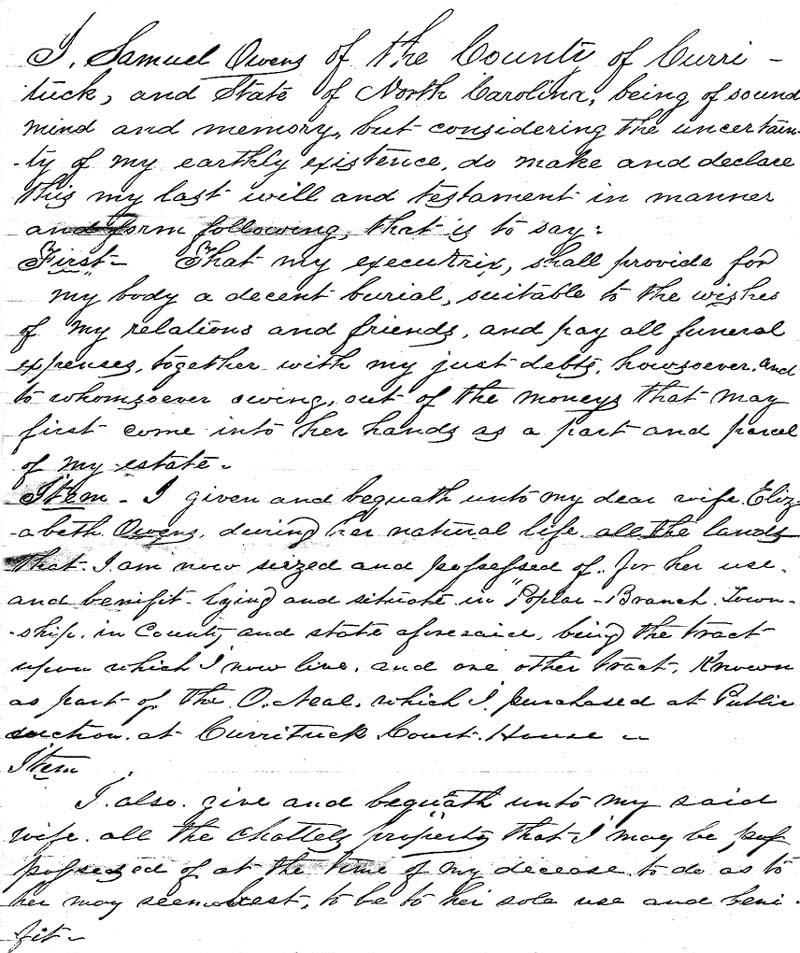 I, Samuel Owens of the County of Curri -
tuck, and State of North Carolina, being of sound
mind and memory, but considering the uncertain-
-ty of my earthly existence, do make and declare
this my last will and testament in manner
and form following, that is to say:
First - That my executrix, shall provide for
my body a decent burial, suitable to the wishes
of my relations and friends, and pay all funeral
expenses, together with my just debts, howsoever, and
to whomsoever owing, out of the moneys that may
first come into her hands as a part and parcel
of my estate -
Item - I given and bequath unto my dear wife Eliz-
-abeth Owens, during her natural life all the lands
that I am now seized and possessed of. for her use.
and benifit - lying and situate in "Poplar - Branch Town-
-ship. in County and state aforesaid, being the tract
upon which I now live. and one other tract. Known
as part of the O.Neal. which I purchased at Public
auction. at Currituck Court. House -
Item
I. also. give and bequath unto my said
wife. all the chattels property that I may be pos
possessed of at the time of my decease to do as to
her may seem best, to be to her sole use and beni-
fit -